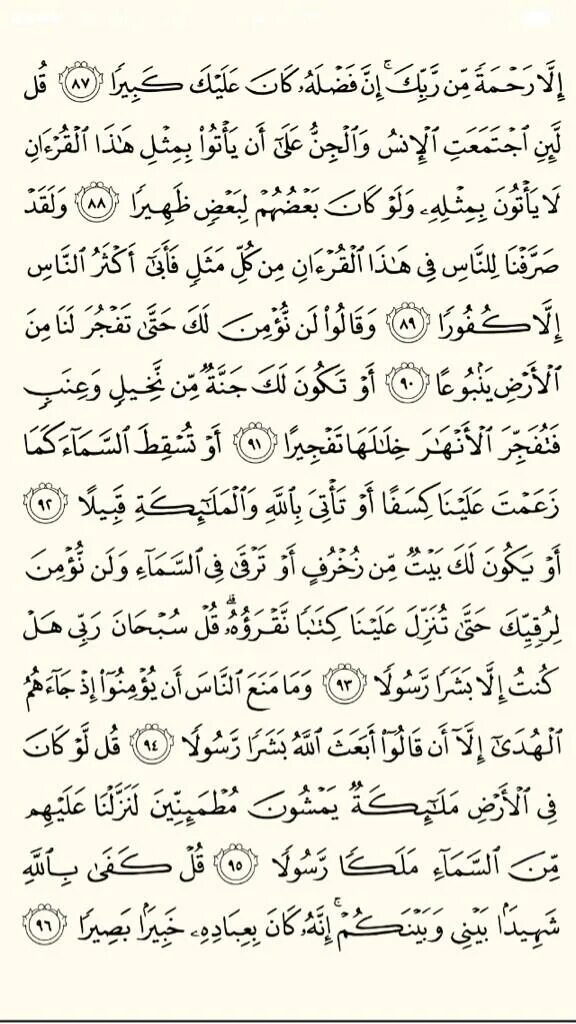 إِلَّا رَحۡمَةٗ مِّن رَّبِّكَۚ إِنَّ فَضۡلَهُۥ كَانَ عَلَيۡكَ كَبِيرٗا ٨٧ قُل
لَّئِنِ ٱجۡتَمَعَتِ ٱلۡإِنسُ وَٱلۡجِنُّ عَلَىٰٓ أَن يَأۡتُواْ بِمِثۡلِ هَٰذَا ٱلۡقُرۡءَانِ
لَا يَأۡتُونَ بِمِثۡلِهِۦ وَلَوۡ كَانَ بَعۡضُهُمۡ لِبَعۡضٖ ظَهِيرٗا ٨٨ وَلَقَدۡ
صَرَّفۡنَا لِلنَّاسِ فِي هَٰذَا ٱلۡقُرۡءَانِ مِن كُلِّ مَثَلٖ فَأَبَىٰٓ أَكۡثَرُ ٱلنَّاسِ
إِلَّا كُفُورٗا ٨٩ وَقَالُواْ لَن نُّؤۡمِنَ لَكَ حَتَّىٰ تَفۡجُرَ لَنَا مِنَ
ٱلۡأَرۡضِ يَنۢبُوعًا ٩٠ أَوۡ تَكُونَ لَكَ جَنَّةٞ مِّن نَّخِيلٖ وَعِنَبٖ
فَتُفَجِّرَ ٱلۡأَنۡهَٰرَ خِلَٰلَهَا تَفۡجِيرًا ٩١ أَوۡ تُسۡقِطَ ٱلسَّمَآءَ كَمَا
زَعَمۡتَ عَلَيۡنَا كِسَفًا أَوۡ تَأۡتِيَ بِٱللَّهِ وَٱلۡمَلَٰٓئِكَةِ قَبِيلًا ٩٢
أَوۡ يَكُونَ لَكَ بَيۡتٞ مِّن زُخۡرُفٍ أَوۡ تَرۡقَىٰ فِي ٱلسَّمَآءِ وَلَن نُّؤۡمِنَ
لِرُقِيِّكَ حَتَّىٰ تُنَزِّلَ عَلَيۡنَا كِتَٰبٗا نَّقۡرَؤُهُۥۗ قُلۡ سُبۡحَانَ رَبِّي هَلۡ
كُنتُ إِلَّا بَشَرٗا رَّسُولٗا ٩٣ وَمَا مَنَعَ ٱلنَّاسَ أَن يُؤۡمِنُوٓاْ إِذۡ جَآءَهُمُ
ٱلۡهُدَىٰٓ إِلَّآ أَن قَالُوٓاْ أَبَعَثَ ٱللَّهُ بَشَرٗا رَّسُولٗا ٩٤ قُل لَّوۡ كَانَ
فِي ٱلۡأَرۡضِ مَلَٰٓئِكَةٞ يَمۡشُونَ مُطۡمَئِنِّينَ لَنَزَّلۡنَا عَلَيۡهِم
مِّنَ ٱلسَّمَآءِ مَلَكٗا رَّسُولٗا ٩٥ قُلۡ كَفَىٰ بِٱللَّهِ
شَهِيدَۢا بَيۡنِي وَبَيۡنَكُمۡۚ إِنَّهُۥ كَانَ بِعِبَادِهِۦ خَبِيرَۢا بَصِيرٗا ٩٦